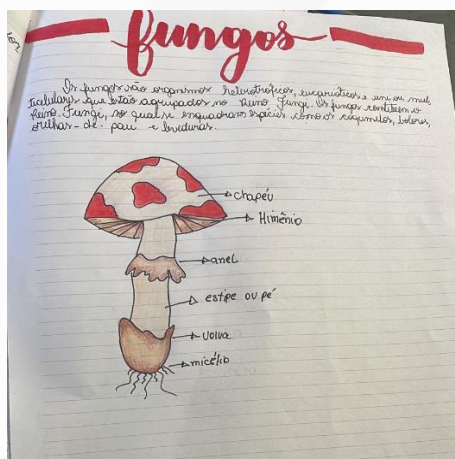 fungos
Os fungos são organismos heterotróficos, eucarióticos e uni ou mul
ticelulares que estão agrupados no Reino Fungi. Os fungos constituem o
Reino Fungi, no qual se enquadram espécies como os cogumelos, bolores,
orelhas-de-pau e leveduras.
chapéu
Himênio
anel
estipe ou pé
volva
micélio